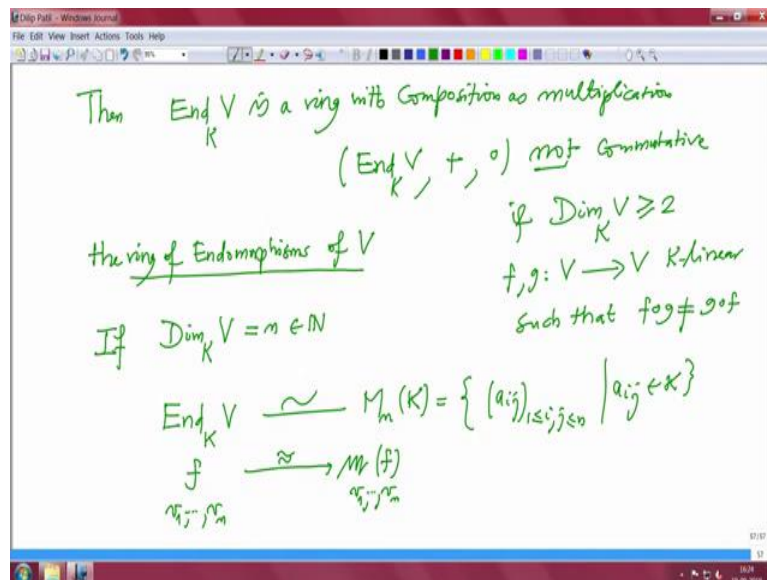 Dilip Patil - Windows Journal
File Edit View Insert Actions Tools Help
Then End_K V is a ring with Composition as multiplication
(End_K V, +, ∘) not Commutative
if Dim_K V ⩾ 2
the ring of Endomorphisms of V
f, g : V ⟶ V K-linear
such that f∘g ≠ g∘f
If Dim_K V = n ∈ ℕ
End_K V ~ M_n(K) = { (a_ij)_{1≤i,j≤n} | a_ij ∈ K }
f ≈⟶ M(f)
v_1,…,v_n v_1,…,v_n
57/57
57
16:24